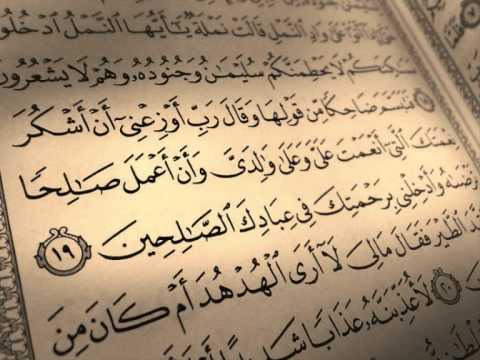 وَادِ ٱلنَّمْلِ قَالَتْ نَمْلَةٌ يَٰٓأَيُّهَا ٱلنَّمْلُ ٱدْخُلُوا۟
مَسَٰكِنَكُمْ لَا يَحْطِمَنَّكُمْ سُلَيْمَٰنُ وَجُنُودُهُۥ وَهُمْ لَا يَشْعُرُونَ
فَتَبَسَّمَ ضَاحِكًا مِّن قَوْلِهَا وَقَالَ رَبِّ أَوْزِعْنِىٓ أَنْ أَشْكُرَ
نِعْمَتَكَ ٱلَّتِىٓ أَنْعَمْتَ عَلَىَّ وَعَلَىٰ وَٰلِدَىَّ وَأَنْ أَعْمَلَ صَٰلِحًا
تَرْضَىٰهُ وَأَدْخِلْنِى بِرَحْمَتِكَ فِى عِبَادِكَ ٱلصَّٰلِحِينَ ١٩
ٱلطَّيْرَ فَقَالَ مَالِىَ لَآ أَرَى ٱلْهُدْهُدَ أَمْ كَانَ مِنَ
٢٠ لَأُعَذِّبَنَّهُۥ عَذَابًا شَدِيدًا